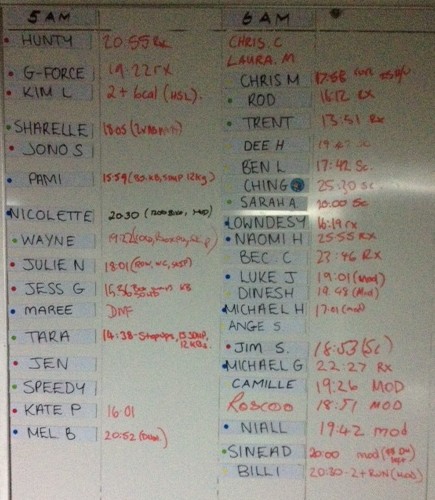 5 AM
HUNTY 20:55 Rx
G-FORCE 19:22 rx
KIM L 2+ 6cal (HSL).
SHARELLE 18:05
JONO S
PAMI 15:59
NICOLETTE 20:30
WAYNE
JULIE N 18:01
JESS G
MAREE DNF
TARA 14:38
JEN
SPEEDY
KATE P 16:01
MEL B 20:52
6 AM
CHRIS. C
LAURA. M
CHRIS M 17:58
ROD 16:12 Rx
TRENT 13:51 Rx
DEE H
BEN L 17:42 Sc.
CHING 25:30 Sc
SARAH A 20:00 Sc
LOWNDESY 16:19 rx
NAOMI H 25:55 Rx
BEC C 23:46 Rx
LUKE J 19:01 (mod)
DINESH 19:48 (Mod)
MICHAEL H 17:01 (mod)
ANGE S
JIM S. 18:53 (Sc)
MICHAEL G 22:27 Rx
CAMILLE 19:26 MOD
Roscoo 18:57 MOD
NIALL 19:42 mod
SINEAD 20:00 mod
BILLI 20:30 - 2+ RUN (MOD)